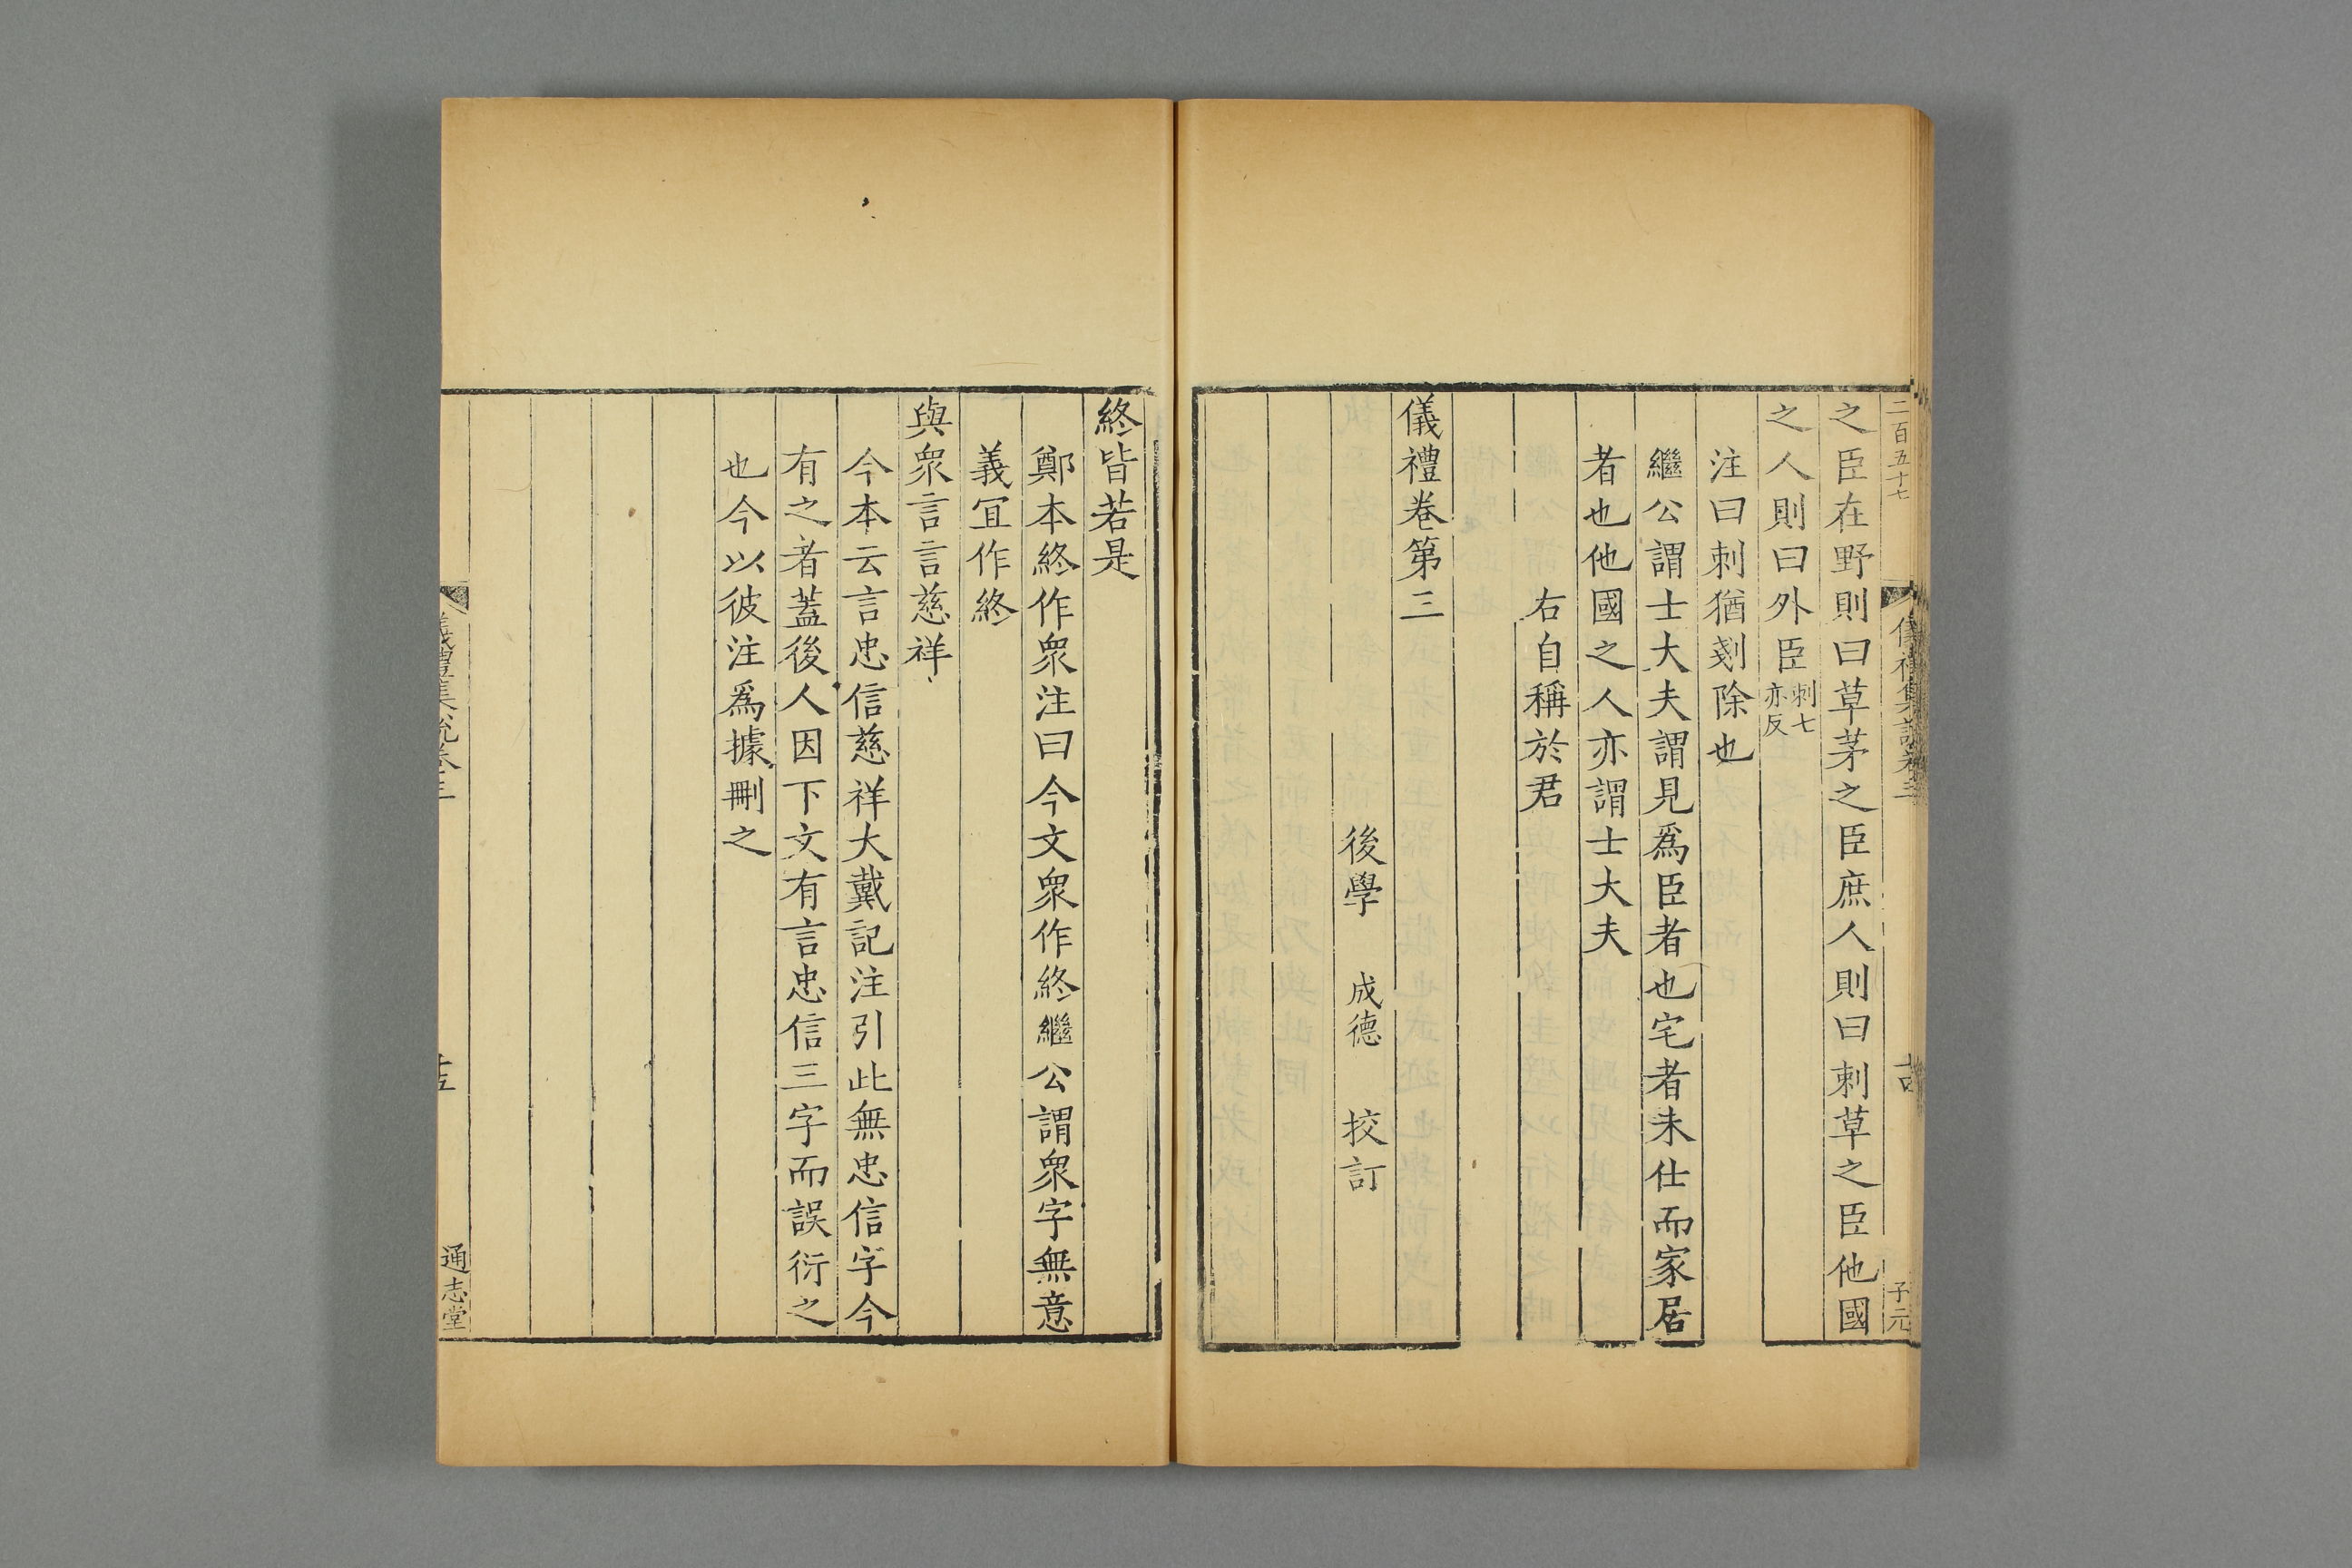 二百五十七
儀禮集說卷三
子元
之臣在野則曰草茅之臣庶人則曰刺草之臣他國
之人則曰外臣刺七亦反
注曰刺猶剗除也
繼公謂士大夫謂見爲臣者也宅者未仕而家居
者也他國之人亦謂士大夫
右自稱於君
儀禮卷第三
後學 成德 挍訂
終皆若是
鄭本終作衆注曰今文衆作終繼公謂衆字無意
義冝作終
與衆言言慈祥
今本云言忠信慈祥大戴記注引此無忠信字今
有之者蓋後人因下文有言忠信三字而誤衍之
也今以彼注爲據刪之
儀禮集說卷三
通志堂